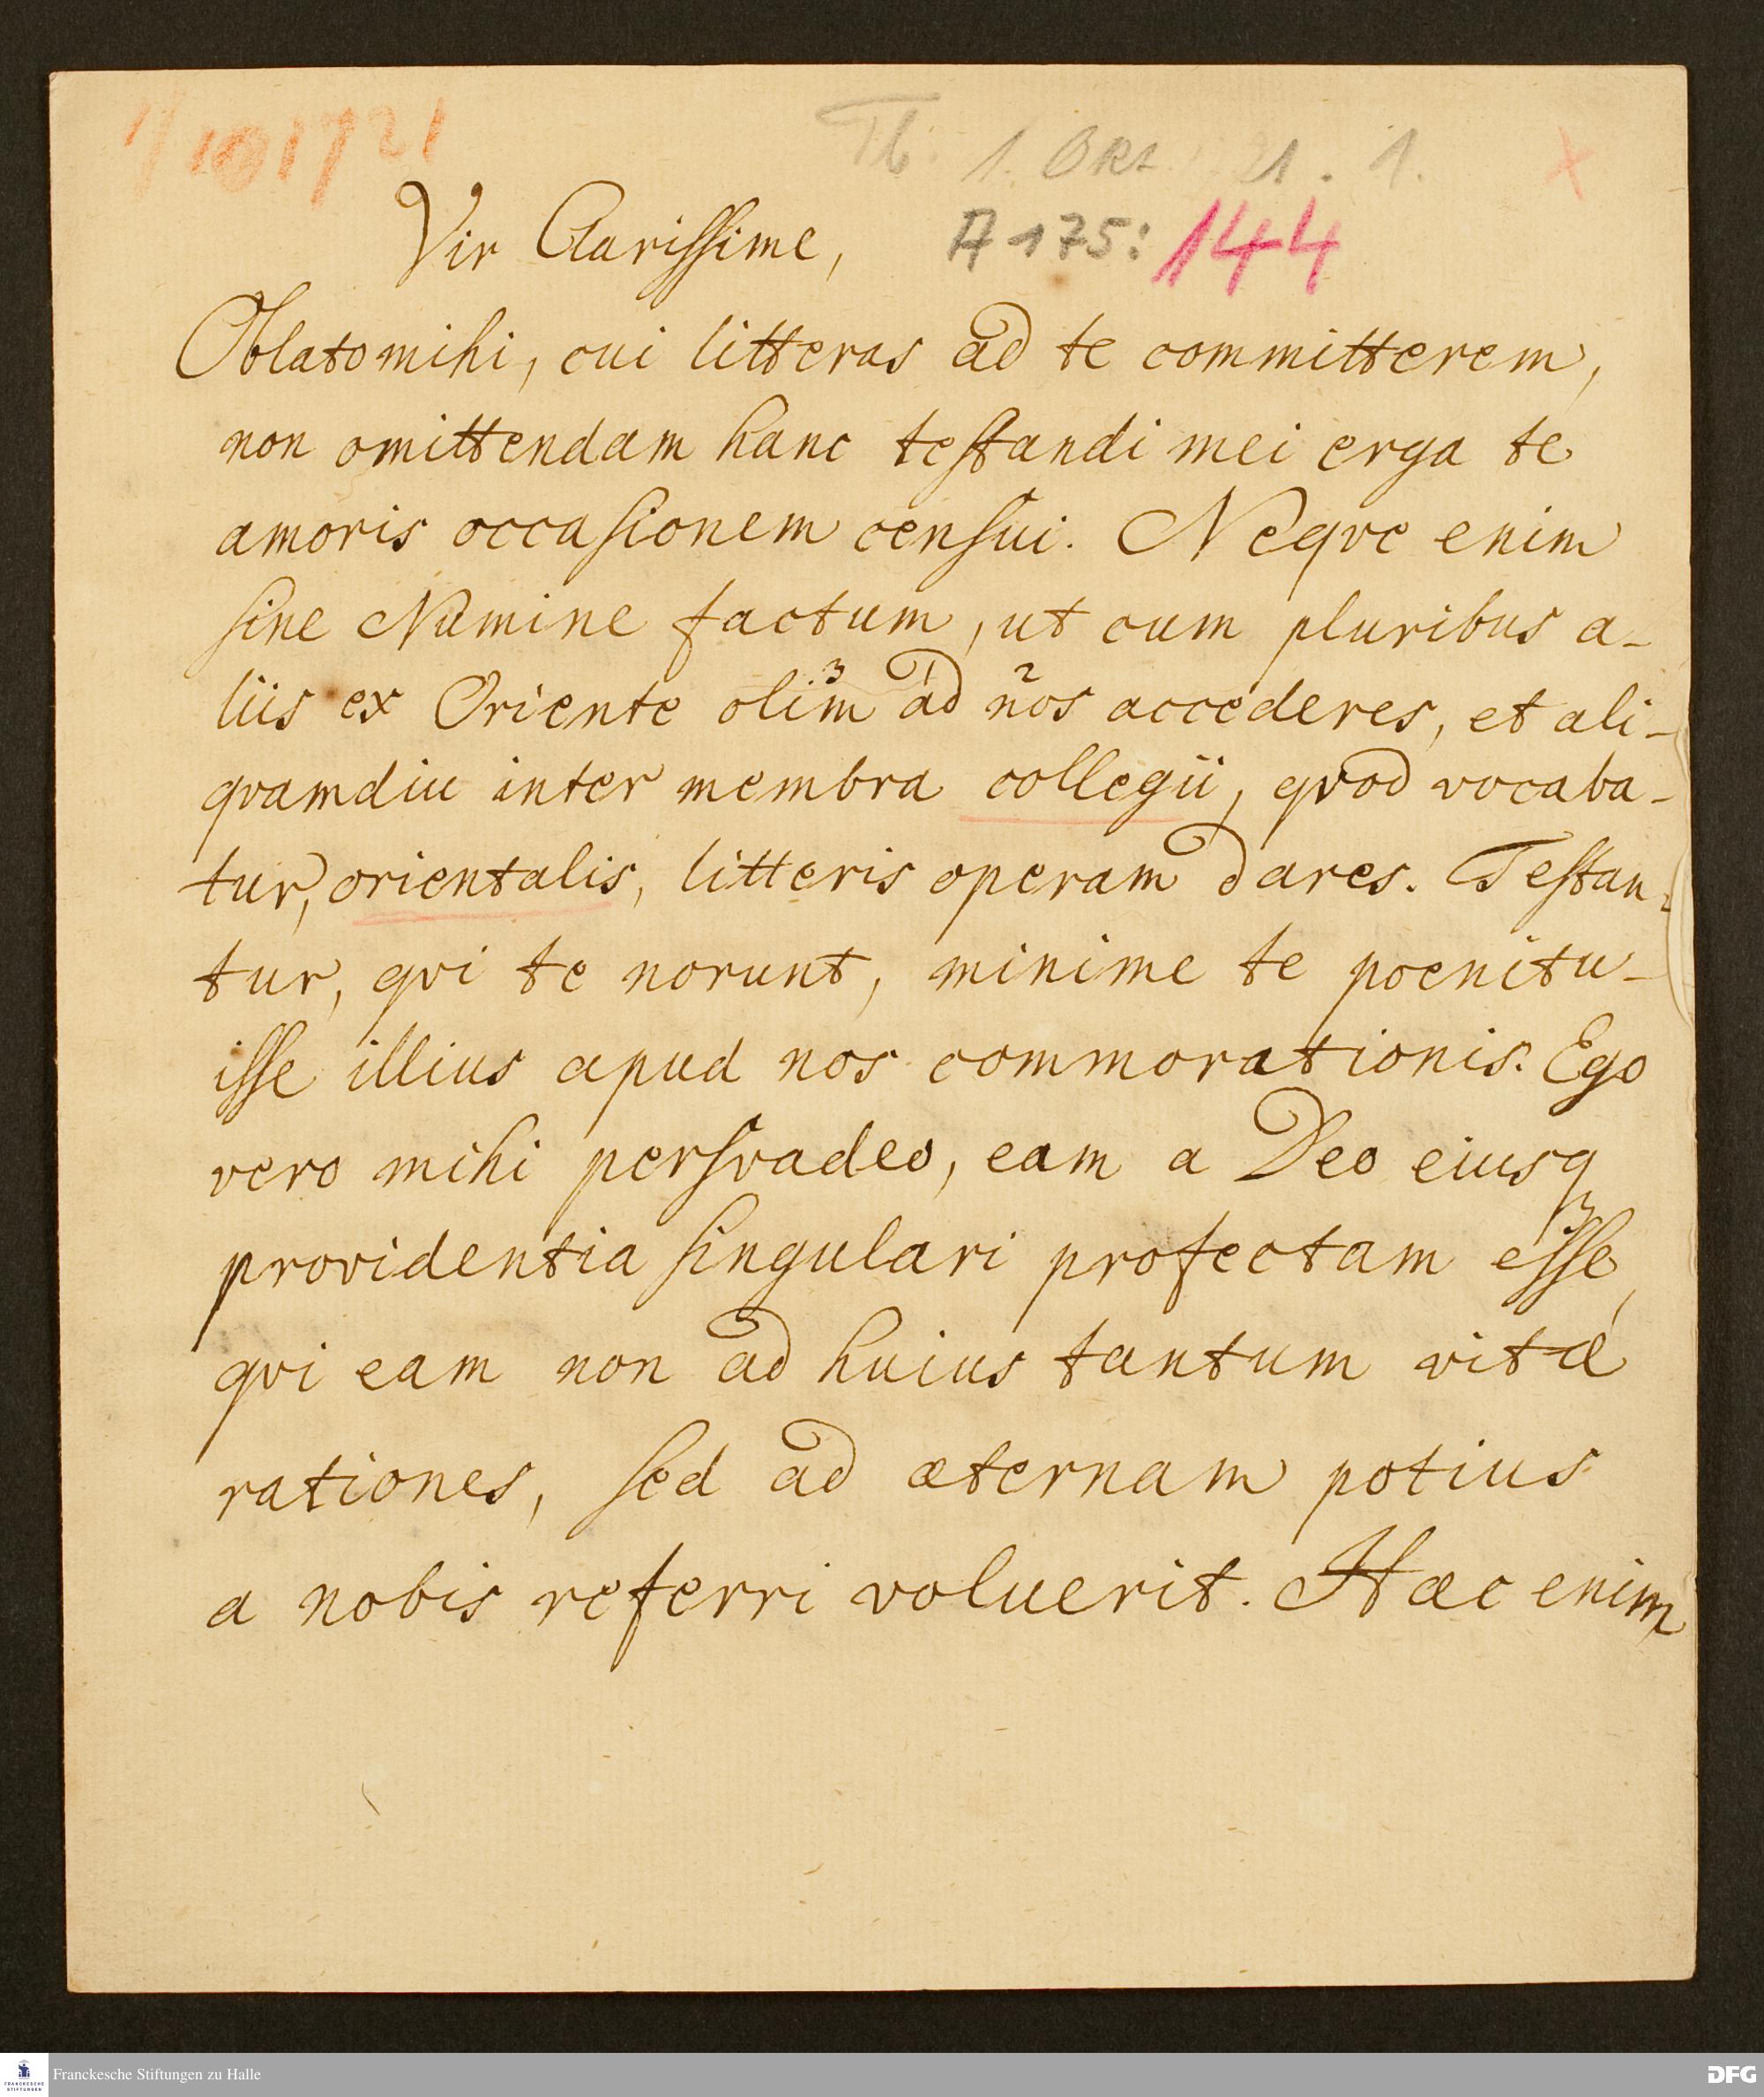 1/10 1721
Tb. 1. Okt. 21. 1.
A 175: 144
Vir Clarissime,
Oblato mihi, cui litteras ad te committerem,
non omittendam hanc testandi mei erga te
amoris occasionem censui. Neqve enim
sine Numine factum, ut cum pluribus a-
liis ex Oriente olim³ ad¹ nos² accederes, et ali-
qvamdiu inter membra collegii, qvod vocaba-
tur, orientalis, litteris operam dares. Testan-
tur, qvi te norunt, minime te poenitu-
isse illius apud nos commorationis. Ego
vero mihi persvadeo, eam a Deo eiusq
providentia singulari profectam esse,
qvi eam non ad huius tantum vitæ
rationes, sed ad æternam potius
a nobis referri voluerit. Hæc enim
FRANCKESCHE
STIFTUNGEN
Franckesche Stiftungen zu Halle
DFG